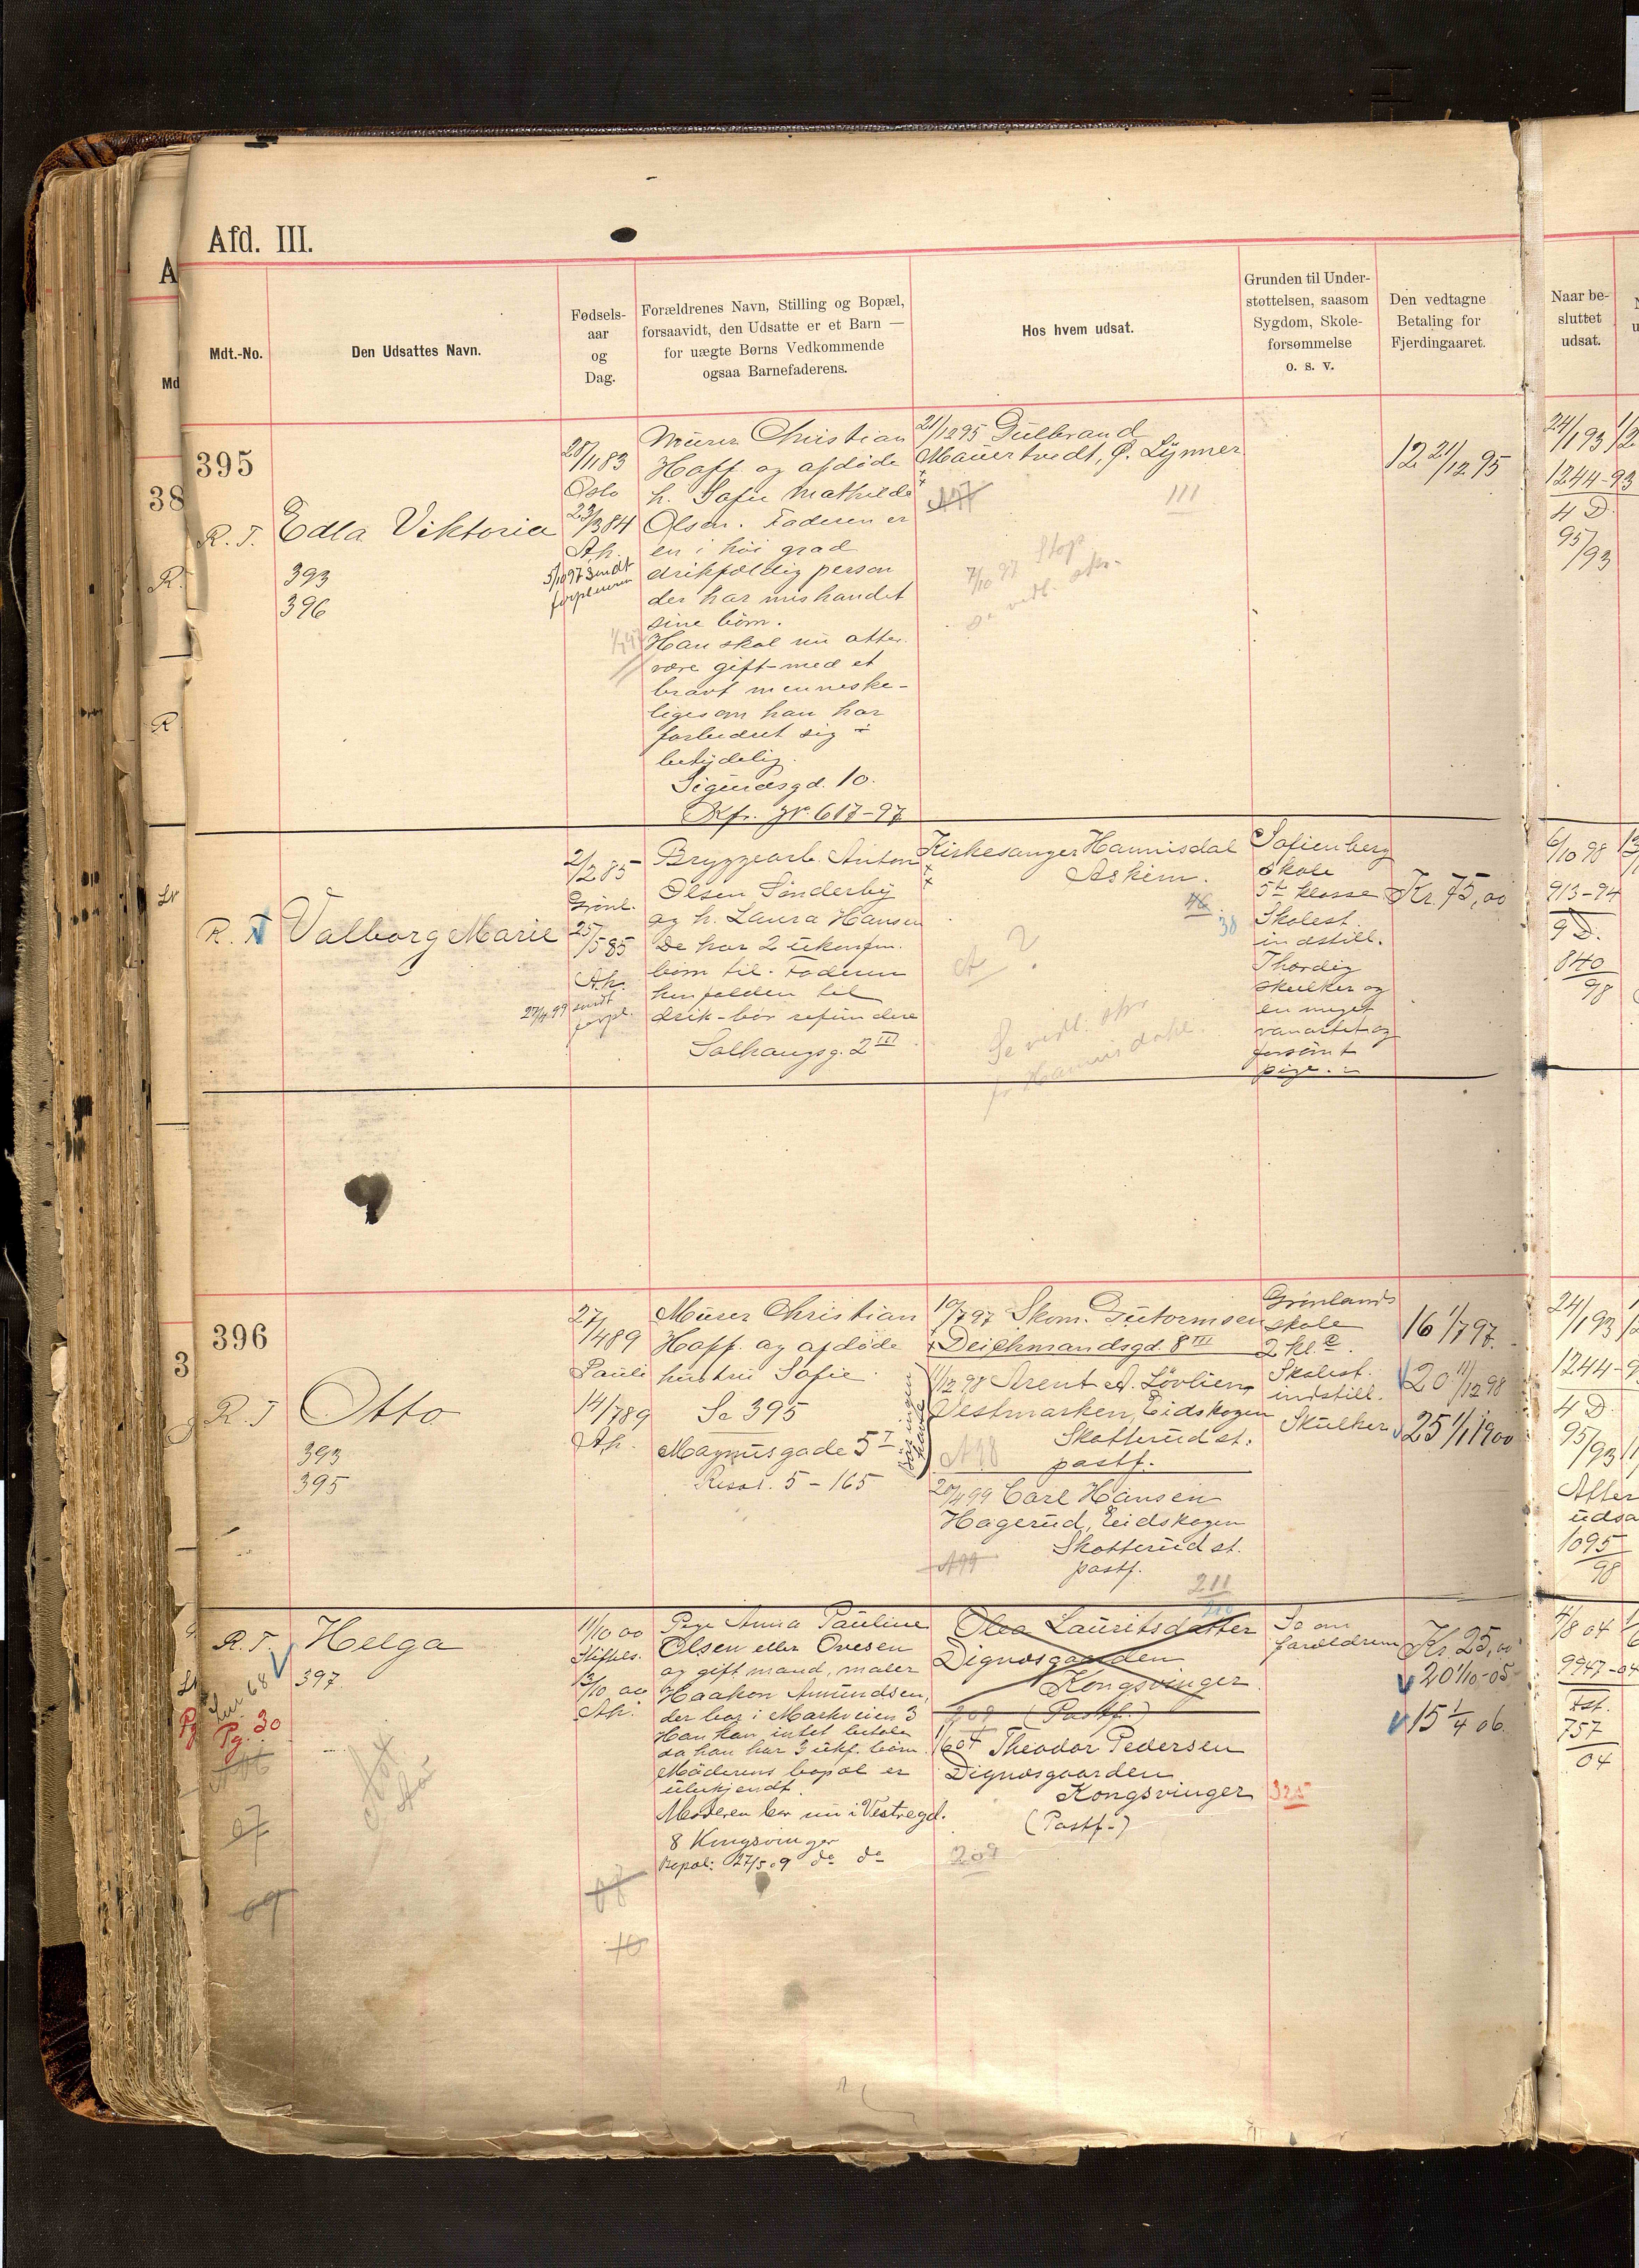 Afd. III.
Mdt.-No.
Den Udsattes Navn.
Fødsels-
aar
og
Dag.
Forældrenes Navn, Stilling og Bopæl,
forsaavidt, den Udsatte er et Barn —
for uægte Børns Vedkommende
ogsaa Barnefaderens.
Hos hvem udsat.
Grunden til Under-
støttelsen, saasom
Sygdom, Skole-
forsømmelse
o. s. v.
Den vedtagne
Betaling for
Fjerdingaaret.
Naar be-
sluttet
udsat.
395
R. T.
Edla Viktoria
393
396
28/11 83
Oslo
23/3 84
Ak.
5/10 97 sendt
Murer Christian
Hoff og afdøde
h. Sofie Mathilde
Olsen. Faderen er
en i høi grad
drikfældig person
der har mishandet
sine børn.
Han skal nu atter
være gift med et
bravt menneske-
ligesom han har
forbedret sig
betydelig.
Sigurdsgd. 10.
Kfr. Jr. 617-97
21/12 95 Gulbrand
Mauertvedt, Ø. Lynner
111
7/10 97 Stop
12 21/12 95
24/1 93
1244-93
4 D.
95/93
R. T.
Valborg Marie
2/2 85
Grønl.
25/5 85
Ak.
27/4 99 sendt
forpl.
Bryggearb. Anton
Olsen Sønderby
og h. Laura Hansen
De har 2 ukonfm.
børn til. Faderen
henfalden til
drik-bør refundere
Solhaugsg. 2 III
Kirkesanger Hannisdal
Askim.
46
38
?
Se vedl. skr
fr Hannisdahl.
Sofienberg
skole
5te klasse
Skolest.
indstill.
Thordig
skulker og
en meget
vanartet og
forsømt
pige.
Kr. 75,00
6/10 98
913-94
9 D.
840/98
396
R. T
Otto
393
395
27/4 89
Pauli
14/7 89
Ak.
Murer Christian
Hoff og afdøde
hustru Sofie.
Se 395
Magnusgade 5 I
Resol. 5-165
10/7 97 Skom. Gutormsen
Deichmandsgd. 8 III
11/12 98 Arent A. Løvlien,
Vestmarken, Eidskogen
Skotterud st.
postf.
A98
20/4 99 Carl Hansen
Hagerud, Eidskogen
Skotterud st.
postf.
A99
211
Grønlands
skole
2 kl.
Skolest.
indstill.
Skulker
16 1/7 97.
20 11/12 98
25 1/1 1900
24/1 93
1244-9
4 D.
95/93
After
udsa
1095/98
R. T.
Helga
397
Pg. 30
11/10 00
Stiftels.
13/10 00
Ak.
Pige Anna Pauline
Olsen eller Ovesen
og gift mand, maler
Haakon Amundsen,
der bor i Markveien 3
Han kan intet betale
da han har 3 ukf. børn.
Moderens bopæl er
ubekjendt.
Moderen bor nu i Vestregd.
8 Kongsvinger
Bopæl: 27/5 09 do do
Olea Lauritsdatter
Dignæsgaarden
Kongsvinger
(Postf.)
Theodor Pedersen
Dignæsgaarden
Kongsvinger
(Postf.)
325
209
Se om
forældrene
Kr. 25,00
20 1/10-05
15 1/4 06.
4/8 04
9947-04
757/04
07
09
08
10